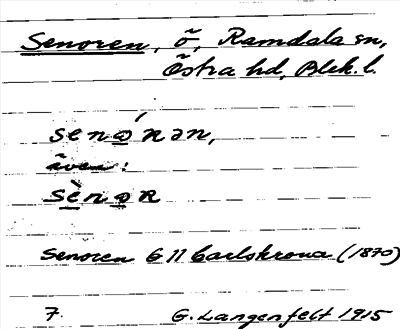 Senoren, ö, Ramdala sn,
Östra hd, Blek. l.
seno̲´rən,
även:
sè̲no̲r
Senoren G 11 Carlskrona (1870)
7. G. Langenfelt 1915